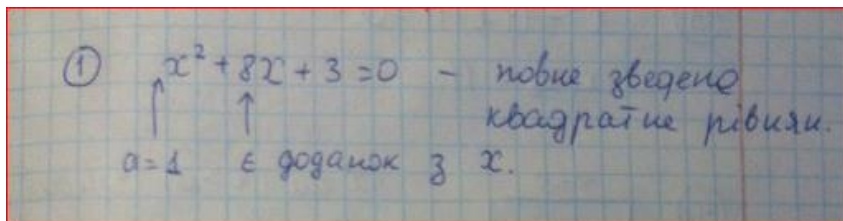 ① x² + 8x + 3 = 0 - повне зведене
квадратне рівнян.
a = 1 є доданок з x.